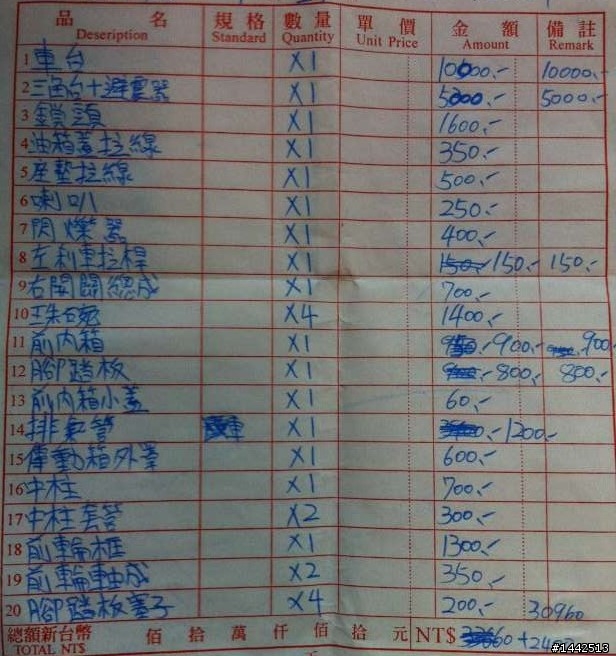 品名 規格 數量 單價 金額 備註
Description Standard Quantity Unit Price Amount Remark
1 車台 X1 10000.- 10000.-
2 三角台+避震器 X1 5000.- 5000.-
3 鎖頭 X1 1600.-
4 油箱蓋拉線 X1 350.-
5 座墊拉線 X1 500.-
6 喇叭 X1 250.-
7 閃爍器 X1 400.-
8 左刹車拉桿 X1 150.- 150.-
9 右開關總成 X1 700.-
10 珠碗 X4 1400.-
11 前內箱 X1 900.- 900.-
12 腳踏板 X1 800.- 800.-
13 前內箱小蓋 X1 60.-
14 排氣管 X1 1200.-
15 傳動箱外罩 X1 600.-
16 中柱 X1 700.-
17 中柱套管 X2 300.-
18 前輪框 X1 1300.-
19 前輪軸成 X2 350.-
20 腳踏板塞子 X4 200.- 30960
總額新台幣 佰 拾 萬 仟 佰 拾 元 NT$ 60+240
TOTAL NT$
#1442513